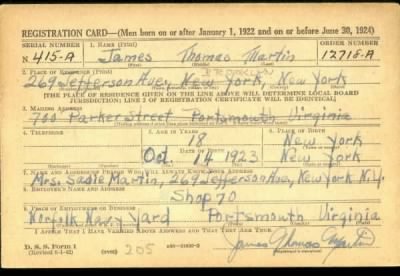 REGISTRATION CARD—(Men born on or after January 1, 1922 and on or before June 30, 1924)
SERIAL NUMBER 1. NAME (Print) ORDER NUMBER
N 415-A James Thomas Martin 12718-A
(First) (Middle) (Last)
BROOKLYN
2. PLACE OF RESIDENCE (Print)
269 Jefferson Ave, New York, New York
[THE PLACE OF RESIDENCE GIVEN ON THE LINE ABOVE WILL DETERMINE LOCAL BOARD
JURISDICTION; LINE 2 OF REGISTRATION CERTIFICATE WILL BE IDENTICAL]
3. MAILING ADDRESS
700 Parker Street Portsmouth, Virginia
4. TELEPHONE 5. AGE IN YEARS 6. PLACE OF BIRTH
18 New York
DATE OF BIRTH
Oct. 14 1923 New York
7. NAME AND ADDRESS OF PERSON WHO WILL ALWAYS KNOW YOUR ADDRESS
Mrs. Sadie Martin, 269 Jefferson Ave, New York N.Y.
8. EMPLOYER'S NAME AND ADDRESS
Shop 70
Norfolk Navy Yard Portsmouth Virginia
I AFFIRM THAT I HAVE VERIFIED ABOVE ANSWERS AND THAT THEY ARE TRUE.
D. S. S. Form 1
(Revised 6-1-42) (over)
205 James Thomas Martin